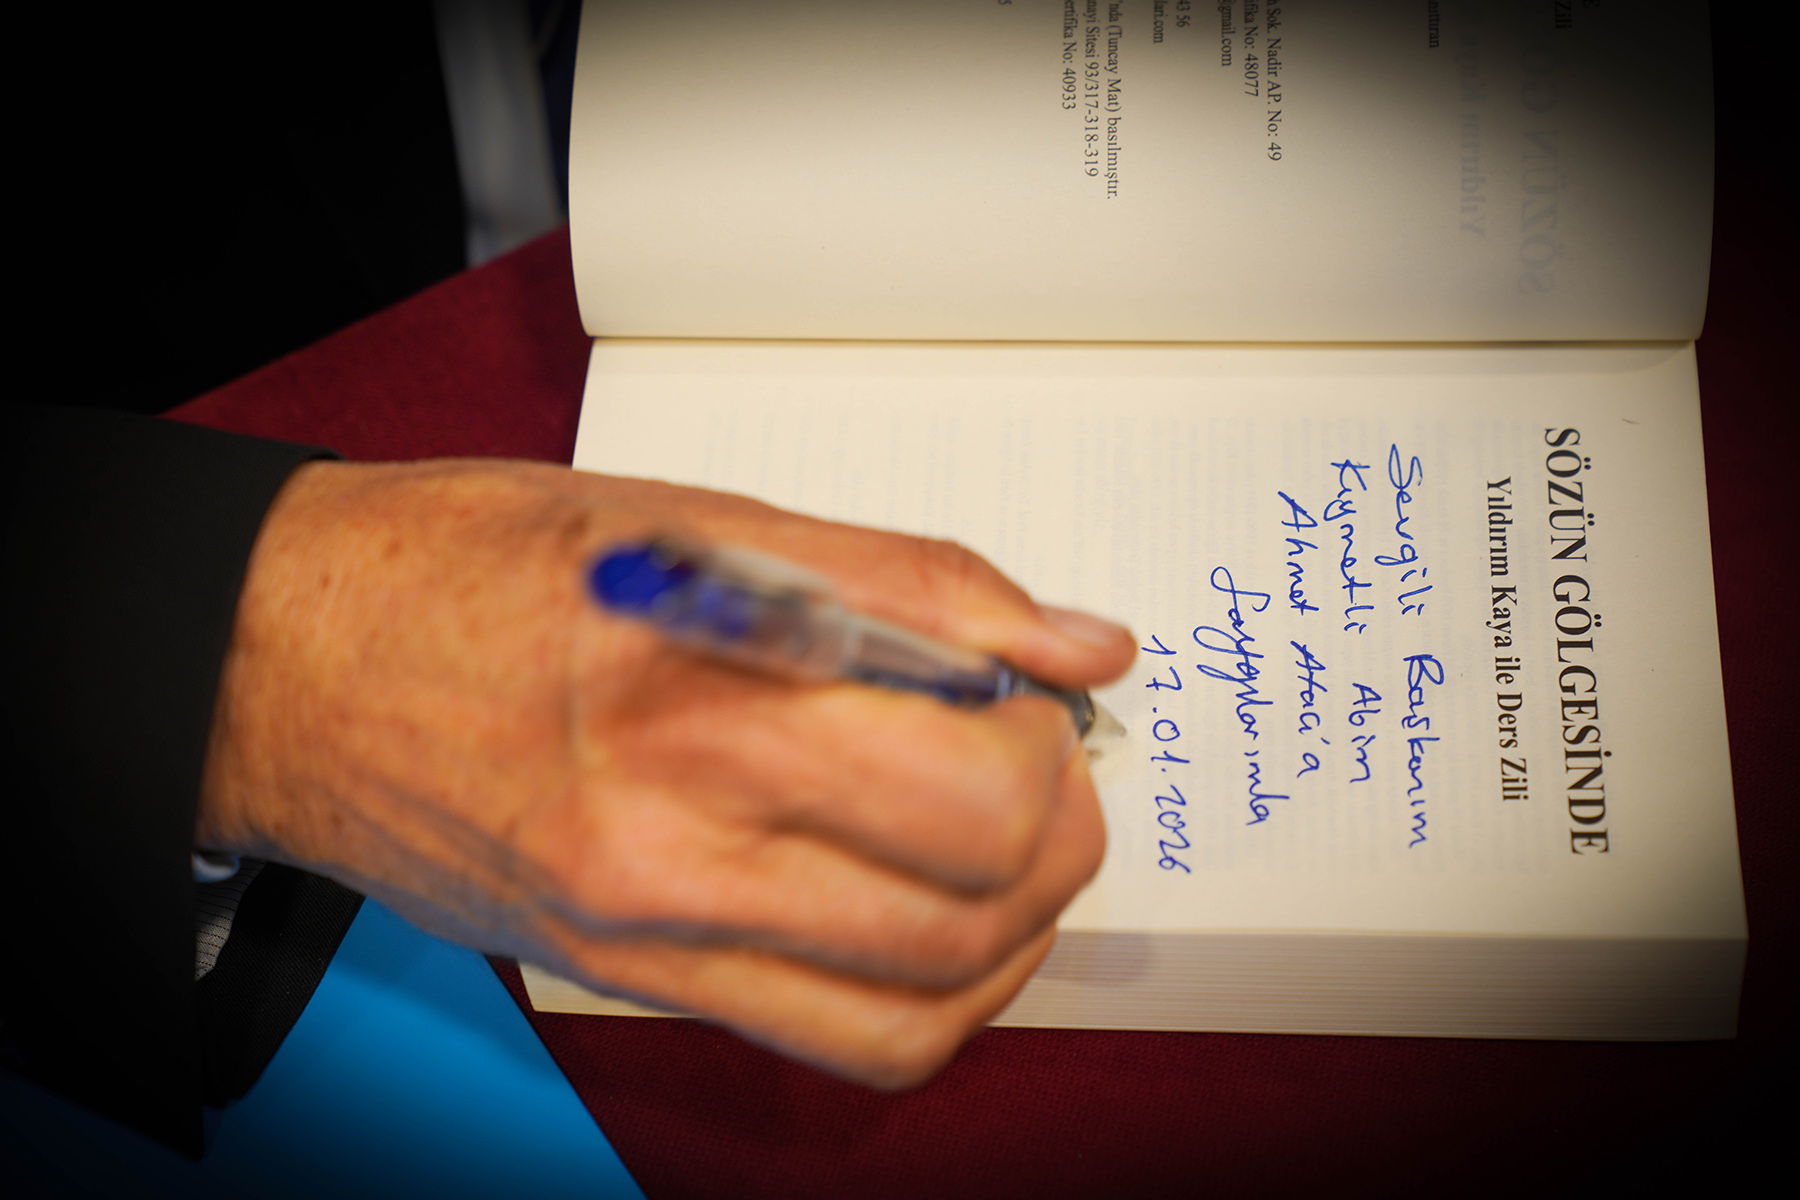 SÖZÜN GÖLGESİNDE
Yıldırım Kaya ile Ders Zili
Sevgili Başkanım
Kıymetli Abim
Ahmet Atacı'a
Saygılarımla
17.01.2026
Zili
Sok. Nadir AP. No: 49
No: 48077
gmail.com
43 56
(Tuncay Mat) basılmıştır.
Sitesi 93/317-318-319
No: 40933